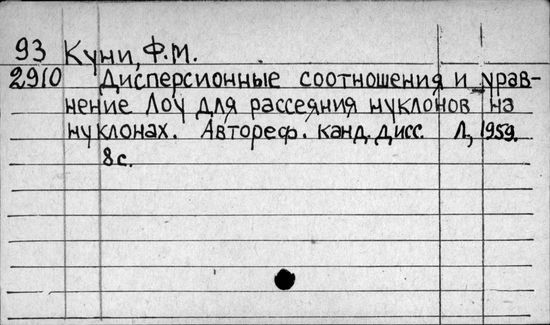 93 Куни, Ф.М.
2910 Дисперсионные соотношения и урав-
нение Лоу для рассеяния нуклонов на
нуклонах. Автореф. канд. дисс. Л, 1959.
8с.